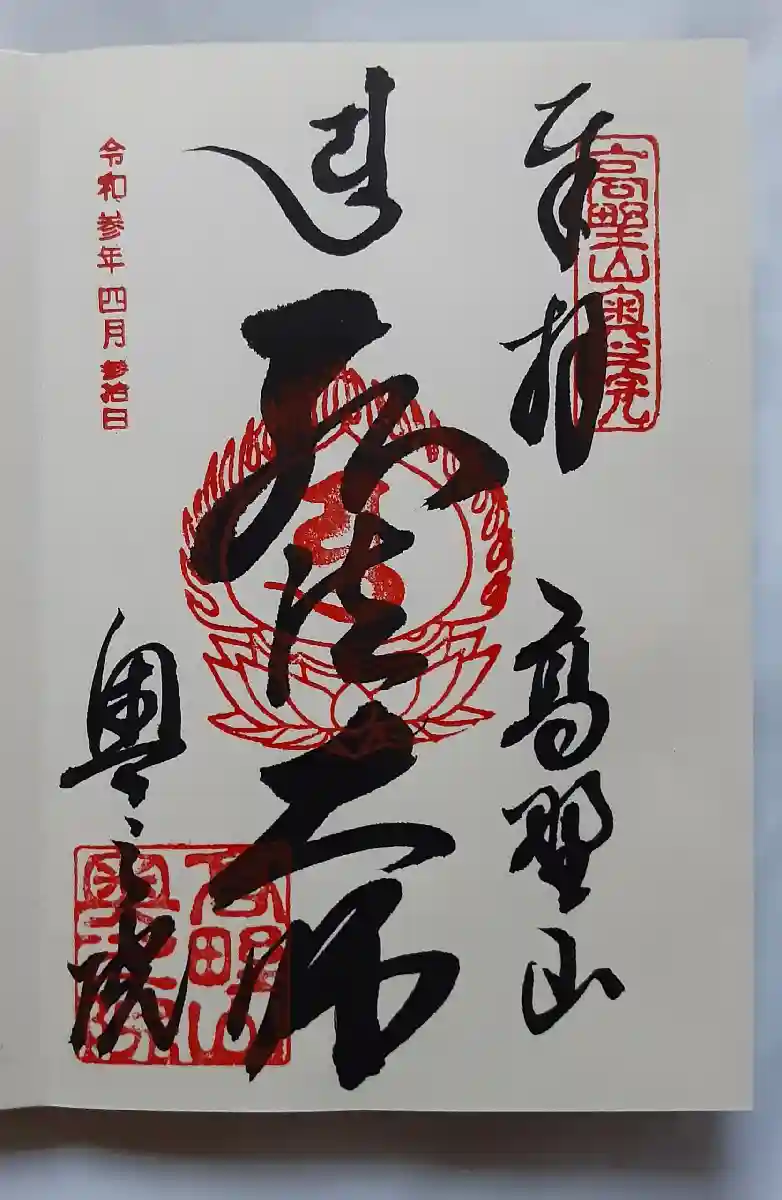 高野山奥之院
奉拝
高野山
弘法大師
奥之院
高野山
奥之院
令和参年四月参拾日